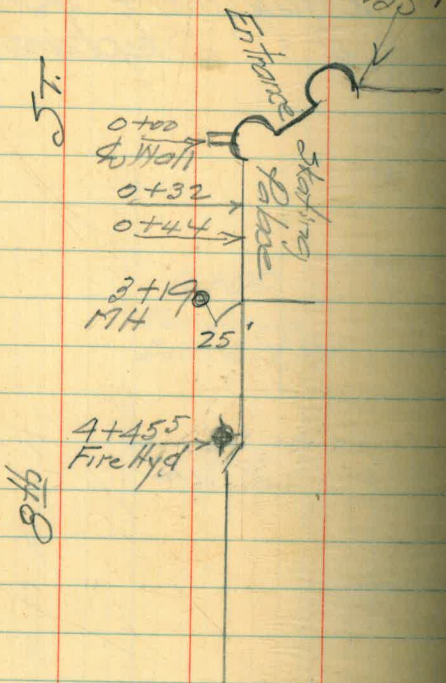 Entrance
Skating
Palace
ST.
0+00
0+32
0+44
3+19
MH
25'
4+45⁵
Fire Hyd
48